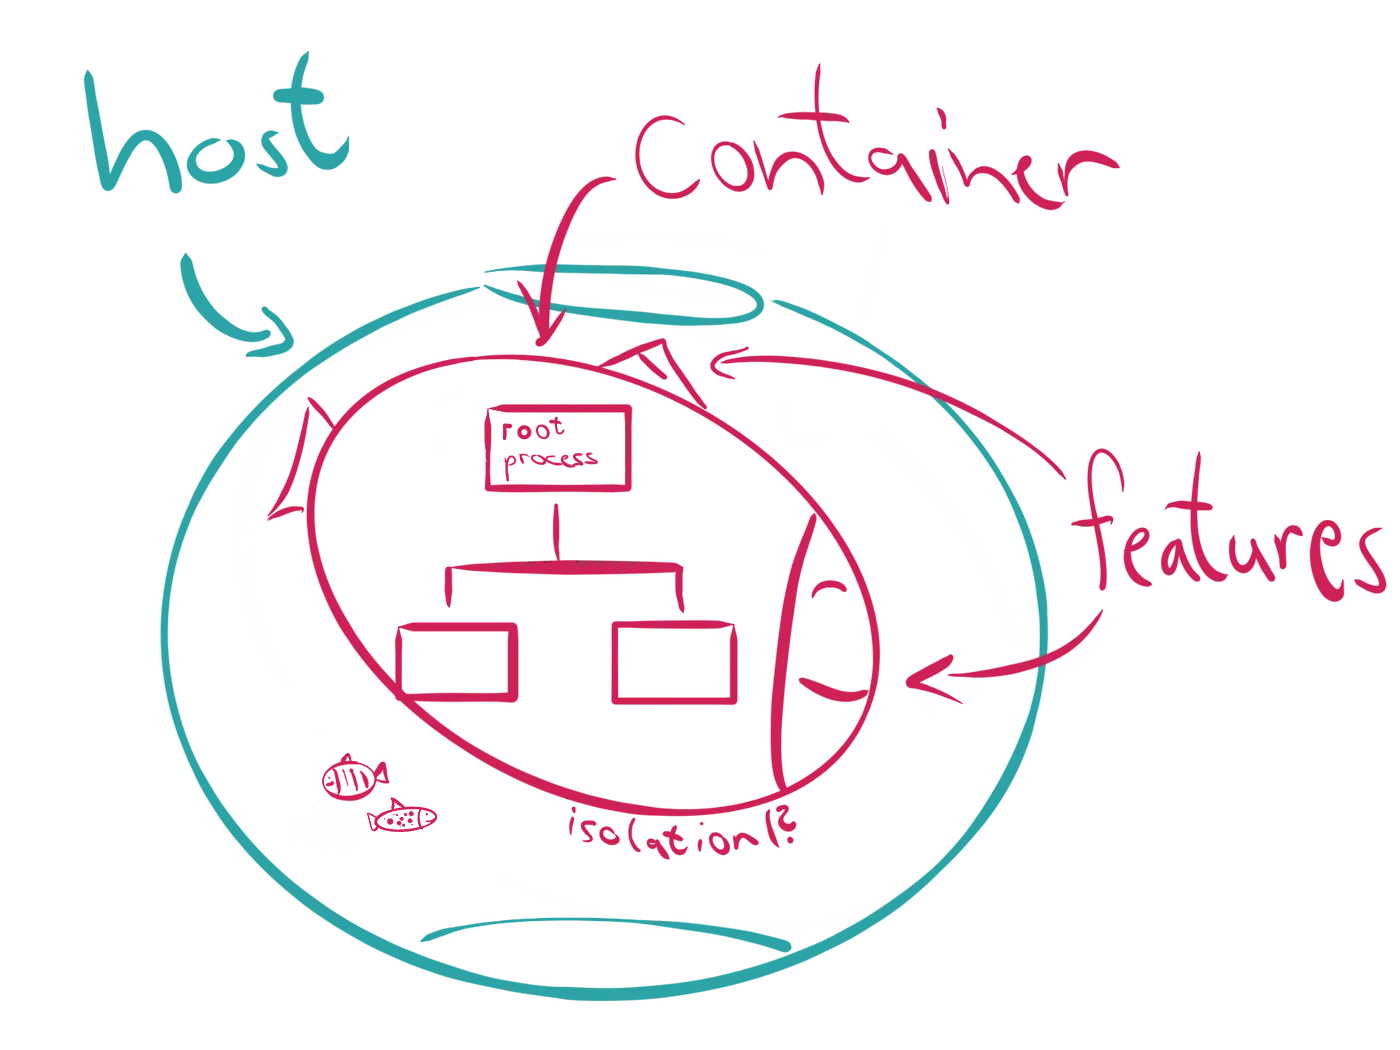 host
container
root
process
features
isolation!?